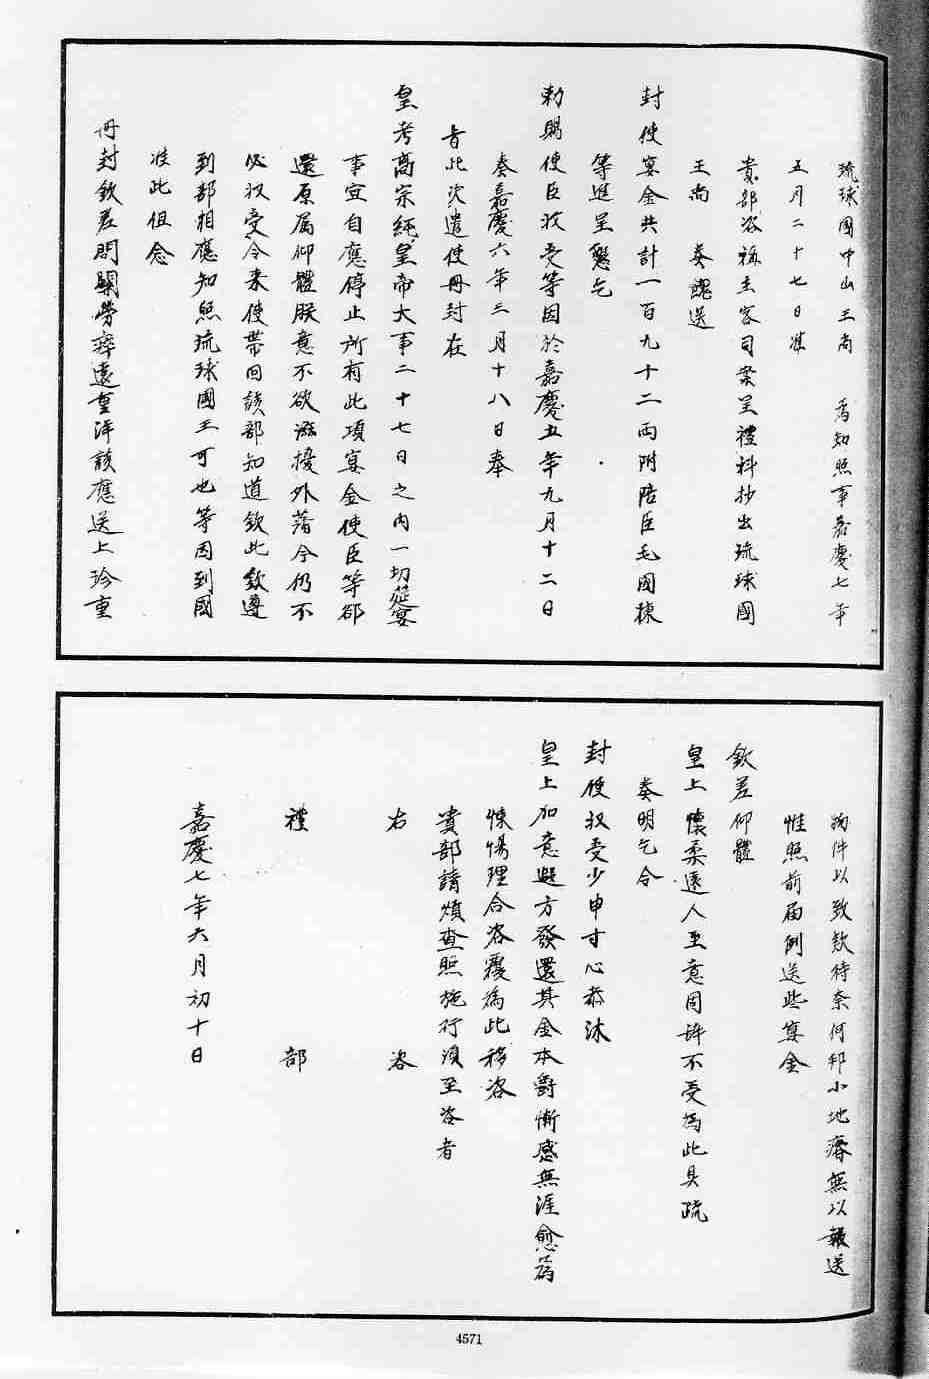 琉球國中山王尚　為知照事嘉慶七年
五月二十七日准
貴部咨稱主客司案呈禮科抄出琉球國
王尚　奏餽送
封使宴金共計一百九十二兩附陪臣毛國棟
等進呈懇乞
勅賜使臣收受等因於嘉慶五年九月十二日
奏嘉慶六年三月十八日奉
旨此次遣使冊封在
皇考高宗純皇帝大事二十七日之內一切筵宴
事宜自應停止所有此項宴金使臣等卻
還原屬仰體朕意不欲滋擾外藩今仍不
必收受令來使帶回該部知道欽此欽遵
到部相應知照琉球國王可也等因到國
准此但念
冊封欽差間關勞瘁遠重洋該應送上珍重
物件以致款待奈何邦小地瘠無以報送
惟照前屆例送些宴金
欽差仰體
皇上懷柔遠人至意固辞不受為此具疏
奏明乞令
封使收受少申寸心恭沐
皇上加意遐方發還其金本爵慚感無涯愈為
悚惕理合咨覆為此移咨
貴部請煩查照施行須至咨者
右　咨
禮　部
嘉慶七年六月初十日
4571